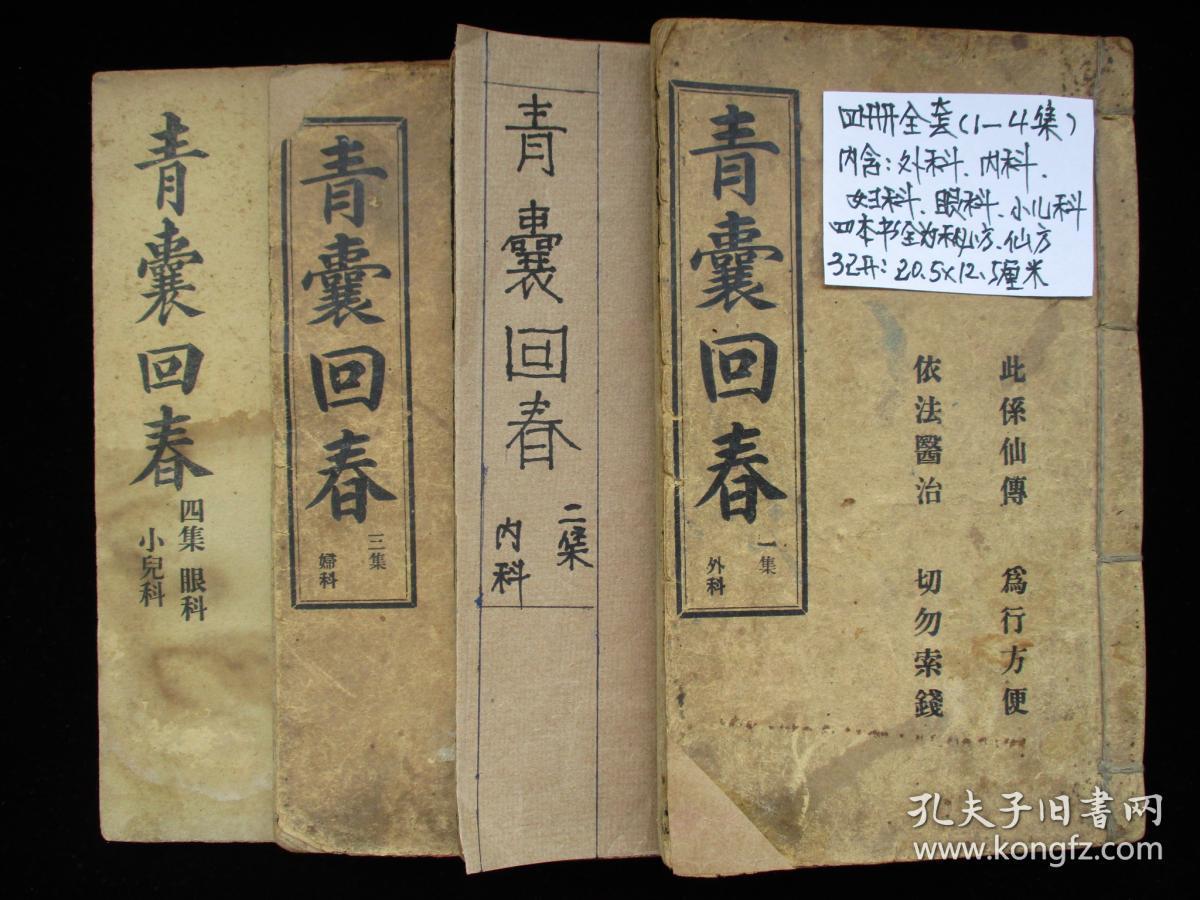 四册全套(1-4集)
内含:外科、内科、
妇科、眼科、小儿科
四本书全为秘方、仙方
32开:20.5×12.5厘米
此係仙傳 為行方便
依法醫治 切勿索錢
青囊回春
一集
外科
青囊回春
二集
内科
青囊回春
三集
婦科
青囊回春
四集 眼科
小兒科
孔夫子旧书网
www.kongfz.com